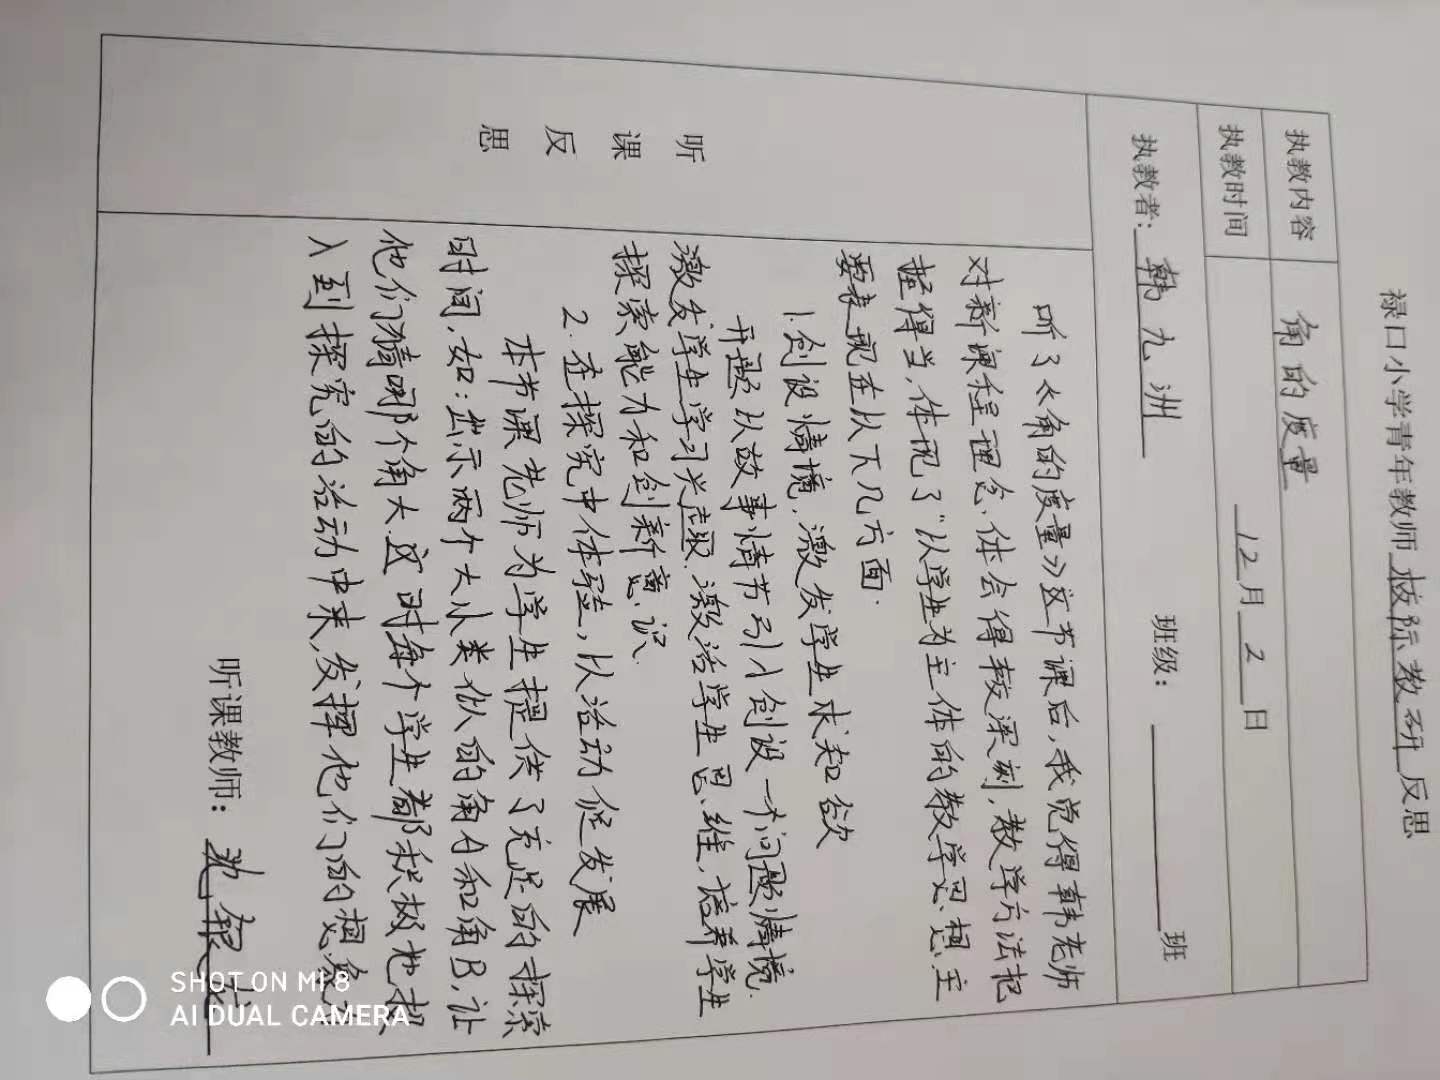 禄口小学青年教师校际教研反思
执教内容 角的度量
执教时间 12月2日
执教者：韩九洲 班级： 班
听课反思
听了《角的度量》这节课后，我觉得韩老师
对新课程理念，体会得较深刻，教学方法把
握得当，体现了“从学生为主体的教学思想，主
要表现在从下几方面．
1．创设情境，激发学生求知欲
开题从故事情节引入创设一个问题情境．
激发学生学习兴趣．激活学生思维，培养学生
探索能力和创新意识．
2．在探究中体验，从活动促发展
本节课老师为学生提供了充足的探索
时间，如：出示两个大小类似的角A和角B，让
他们猜哪个角大这时每个学生都积极地投
入到探究的活动中来，发挥他们的想象
听课教师：
SHOT ON MI 8
AI DUAL CAMERA